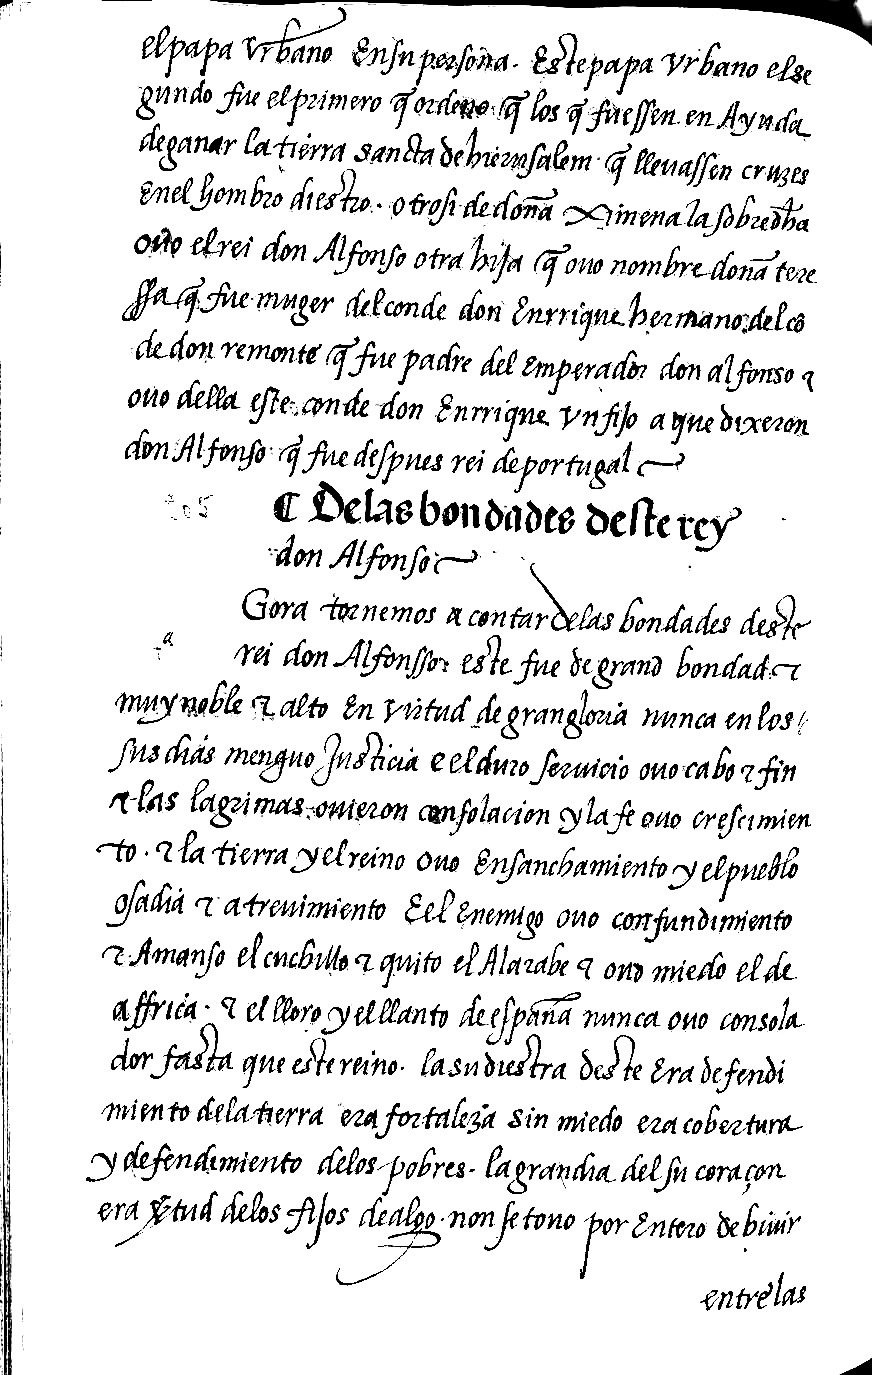 el papa vrbano En su persona. Este papa vrbano el se
gundo fue el primero q̃ ordeno q̃ los q̃ fuessen en Ayuda
de ganar la tierra sancta de hierusalem q̃ lleuassen cruzes
En el hombro diestro. otrosi de doña Ximena la sobredh̃a
ouo el rei don Alfonso otra hija q̃ ouo nombre doña tere
ssa q̃ fue muger del conde don Enrrique hermano del cõ
de don remonte q̃ fue padre del Emperador don alfonso ⁊
ouo della este conde don Enrrique vn fijo a que dixeron
don Alfonso q̃ fue despues rei de portugal
¶ De las bondades deste rey
don Alfonso
a
Gora tornemos a contar de las bondades deste
rei don Alfonsso: este fue de grand bondad ⁊
muy noble ⁊ alto En virtud de gran gloria nunca en los
sus dias menguo Justicia e el duro seruicio ouo cabo ⁊ fin
⁊ las lagrimas ouieron consolacion y la fe ouo crescimien
to. ⁊ la tierra y el reino ouo Ensanchamiento y el pueblo
osadia ⁊ atreuimiento E el Enemigo ouo confundimiento
⁊ Amanso el cuchillo ⁊ quito el Alarabe ⁊ ouo miedo el de
affrica. ⁊ el lloro y el llanto de españa nunca ouo consola
dor fasta que este reino. la su diestra deste Era defendi
miento de la tierra era fortaleza sin miedo era cobertura
y defendimiento de los pobres. la grandia del su coraçon
era ṽtud de los fijos dealgo. non se touo por Entero de biuir
entre las